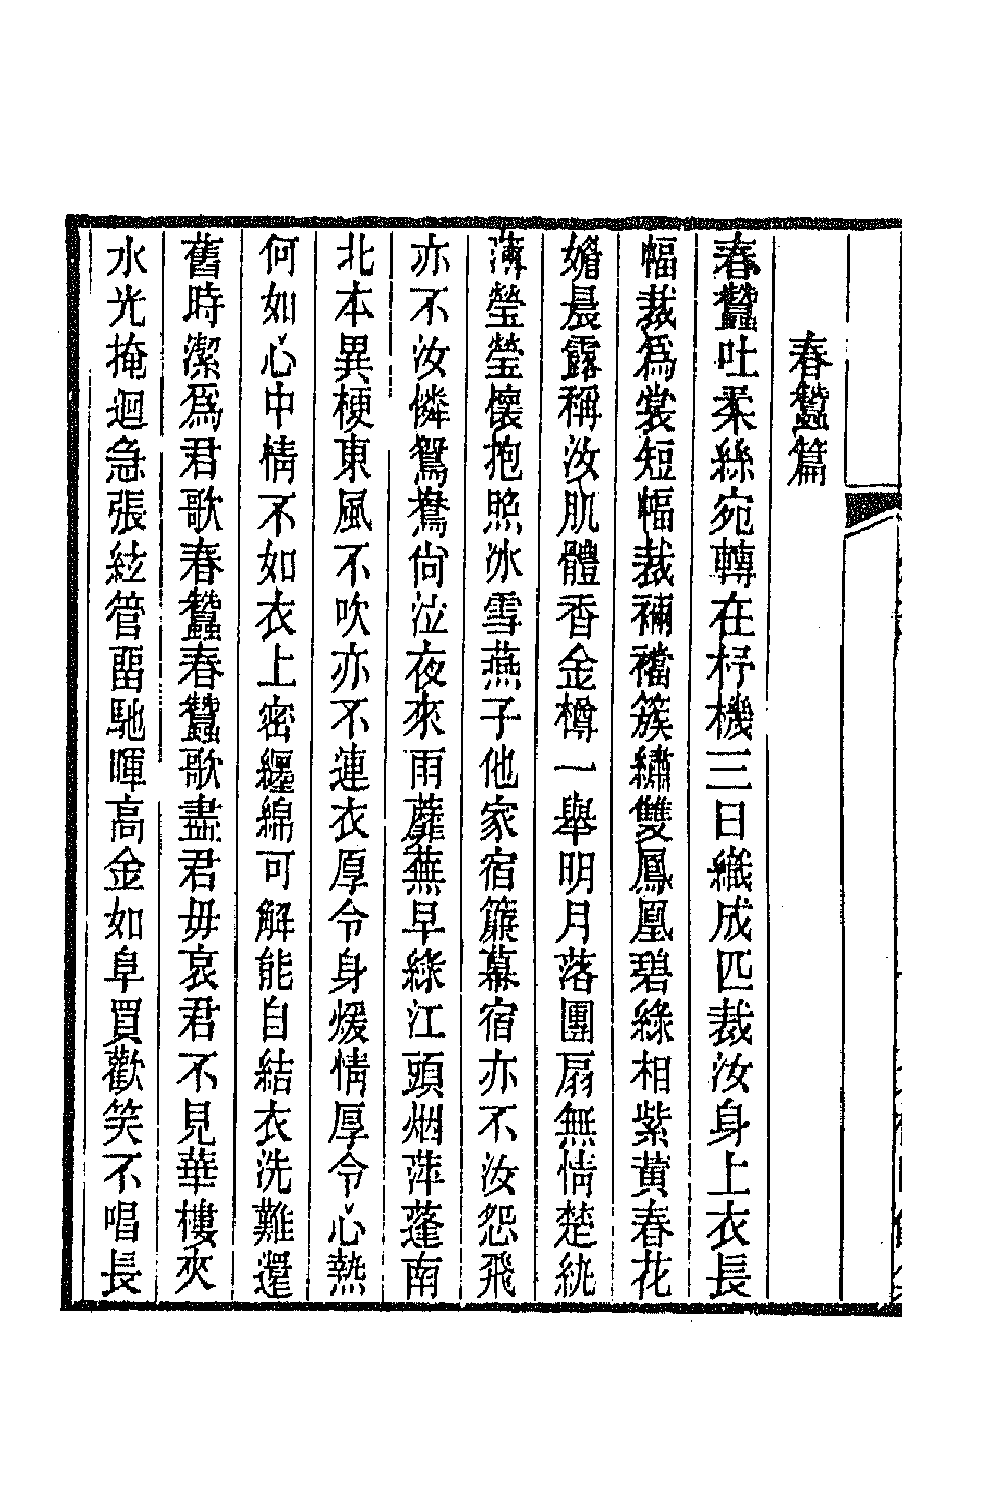 春蠶篇
春蠶吐柔絲宛轉在杼機三日織成匹裁汝身上衣長
幅裁爲裳短幅裁裲襠簇繡雙鳳凰碧綠相紫黄春花
媚晨露稱汝肌體香金樽一舉明月落團扇無情楚紈
薄瑩瑩懷抱照冰雪燕子他家宿簾幕宿亦不汝怨飛
亦不汝憐鴛鴦尙泣夜來雨蘼蕪早綠江頭烟萍蓬南
北本異梗東風不吹亦不連衣厚令身煖情厚令心熱
何如心中情不如衣上密纏綿可解能自結衣洗難還
舊時潔爲君歌春蠶春蠶歌盡君毋哀君不見華樓夾
水光掩迴急張絃管畱馳暉高金如阜買歡笑不唱長